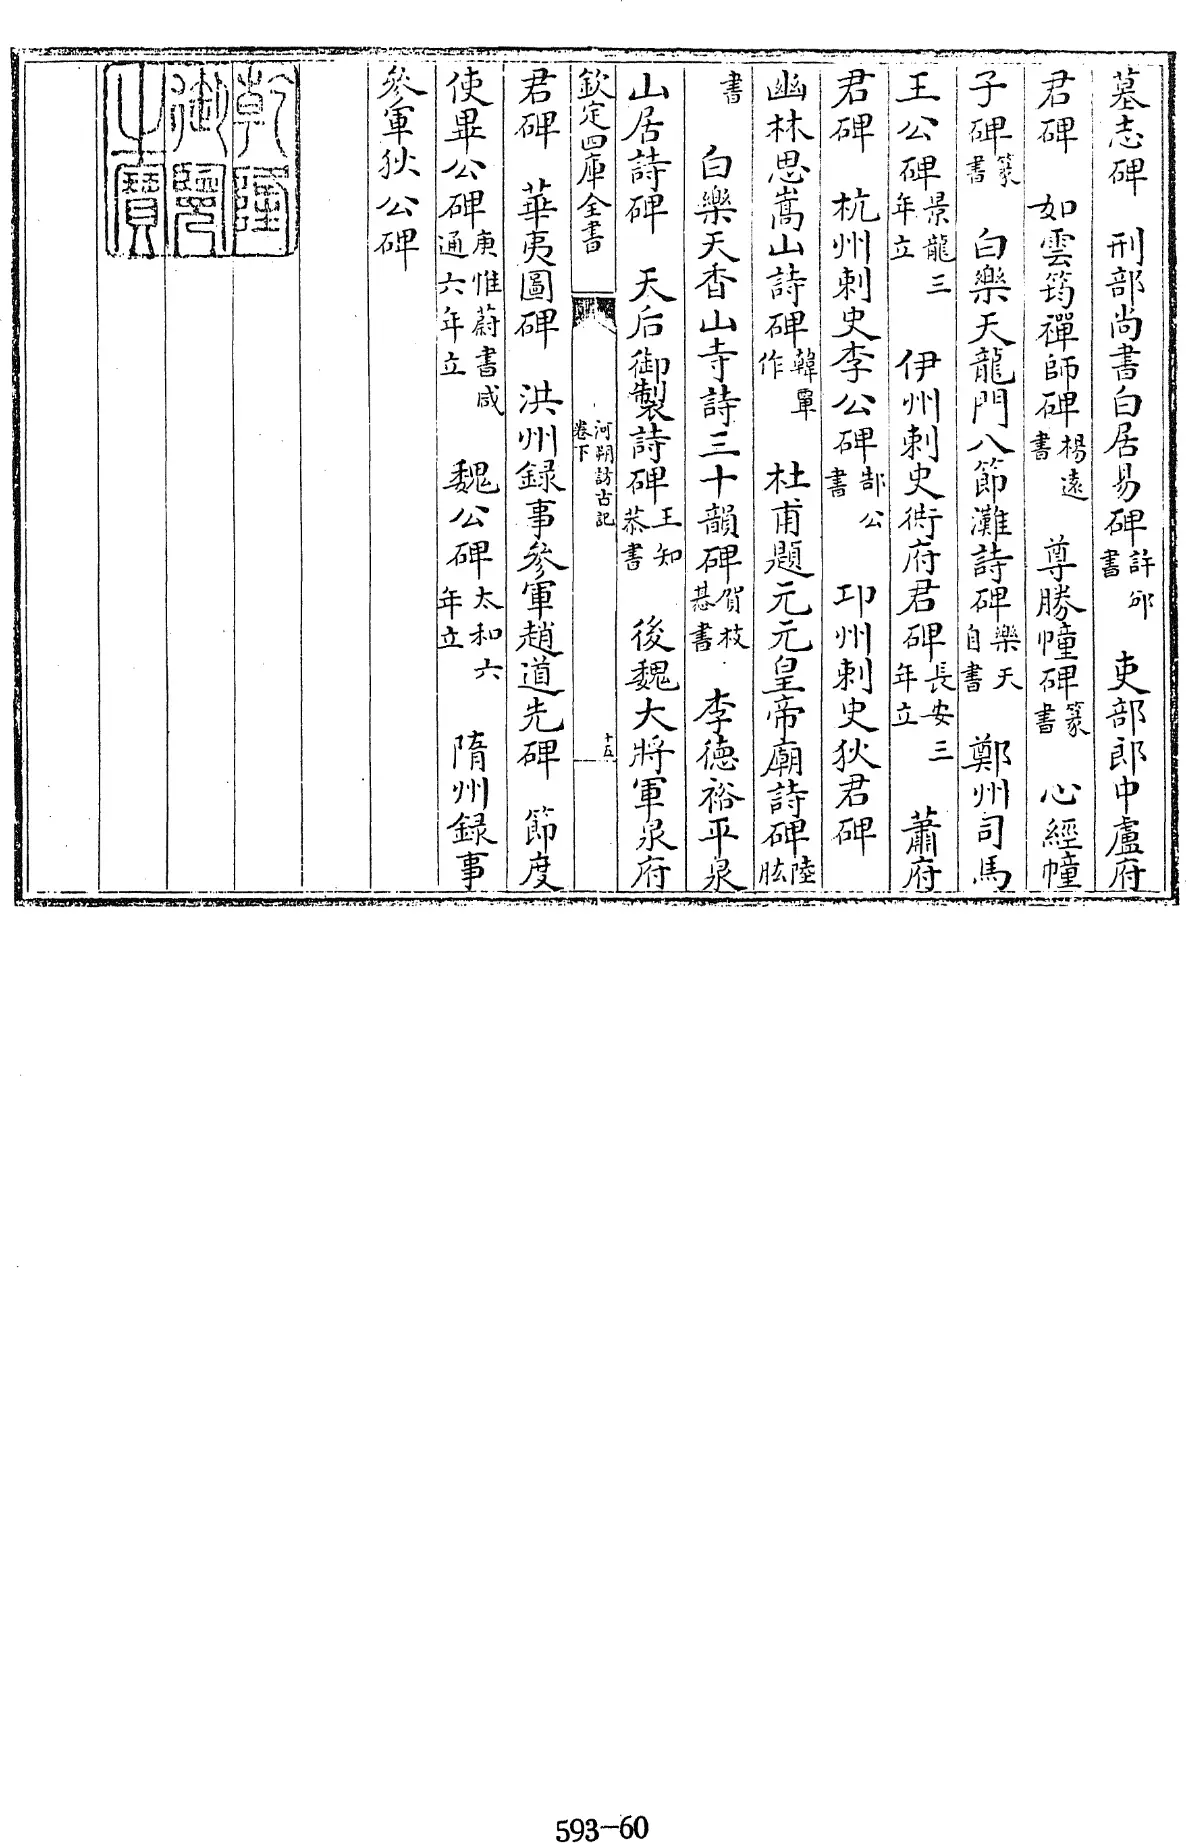 墓志碑　刑部尚書白居易碑許邜書　吏部郎中盧府
君碑　如雲筠禪師碑楊遠書　尊勝幢碑篆書　心經幢
子碑篆書　白樂天龍門八節灘詩碑樂天自書　鄭州司馬
王公碑景龍三年立　伊州刺史衙府君碑長安三年立　蕭府
君碑　杭州刺史李公碑郜公書　邛州刺史狄君碑
幽林思嵩山詩碑韓覃作　杜甫題元元皇帝廟詩碑陸肱
書　白樂天香山寺詩三十韻碑賀枝惎書　李德裕平泉
山居詩碑　天后御製詩碑王知恭書　後魏大將軍泉府
欽定四庫全書　河朔訪古記卷下　十五
君碑　華夷圖碑　洪州録事參軍趙道先碑　節度
使畢公碑庾惟蔚書咸通六年立　魏公碑太和六年立　隋州録事
參軍狄公碑
乾隆御覽之寶
593-60